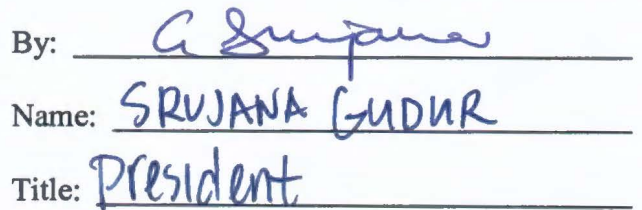 By: G Srujana
Name: SRUJANA GUDUR
Title: President